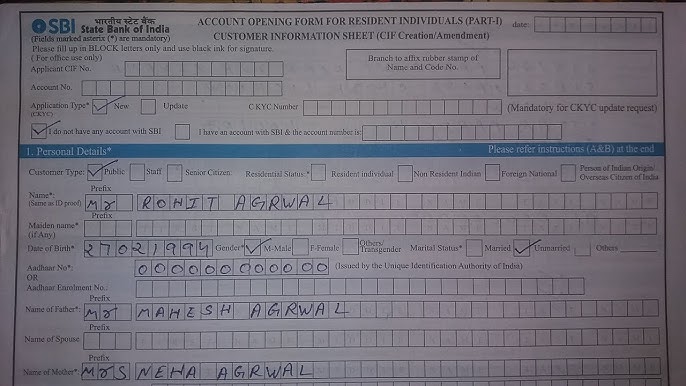 SBI भारतीय स्टेट बैंक State Bank of India
ACCOUNT OPENING FORM FOR RESIDENT INDIVIDUALS (PART-I) date:
(Fields marked asterix (*) are mandatory) CUSTOMER INFORMATION SHEET (CIF Creation/Amendment)
Please fill up in BLOCK letters only and use black ink for signature.
( For office use only)
Branch to affix rubber stamp of
Name and Code No.
Applicant CIF No.
Account No.
Application Type* New Update CKYC Number (Mandatory for CKYC update request)
(CKYC)
I do not have any account with SBI I have an account with SBI & the account number is:
1. Personal Details* Please refer instructions (A&B) at the end
Customer Type: Public Staff Senior Citizen Residential Status:* Resident individual Non Resident Indian Foreign National Person of Indian Origin/
Overseas Citizen of India
Prefix
Name*: Mr ROHIT AGRWAL
(Same as ID proof)
Maiden name*
(if Any)
Date of Birth* 27021994 Gender* M-Male F-Female Others/ Transgender Marital Status* Married Unmarried Others
Aadhaar No*: 000000000000 (Issued by the Unique Identification Authority of India)
OR
Aadhaar Enrolment No.
Prefix
Name of Father* Mr MAHESH AGRWAL
Prefix
Name of Spouse
Prefix
Name of Mother* Mrs NEHA AGRWAL